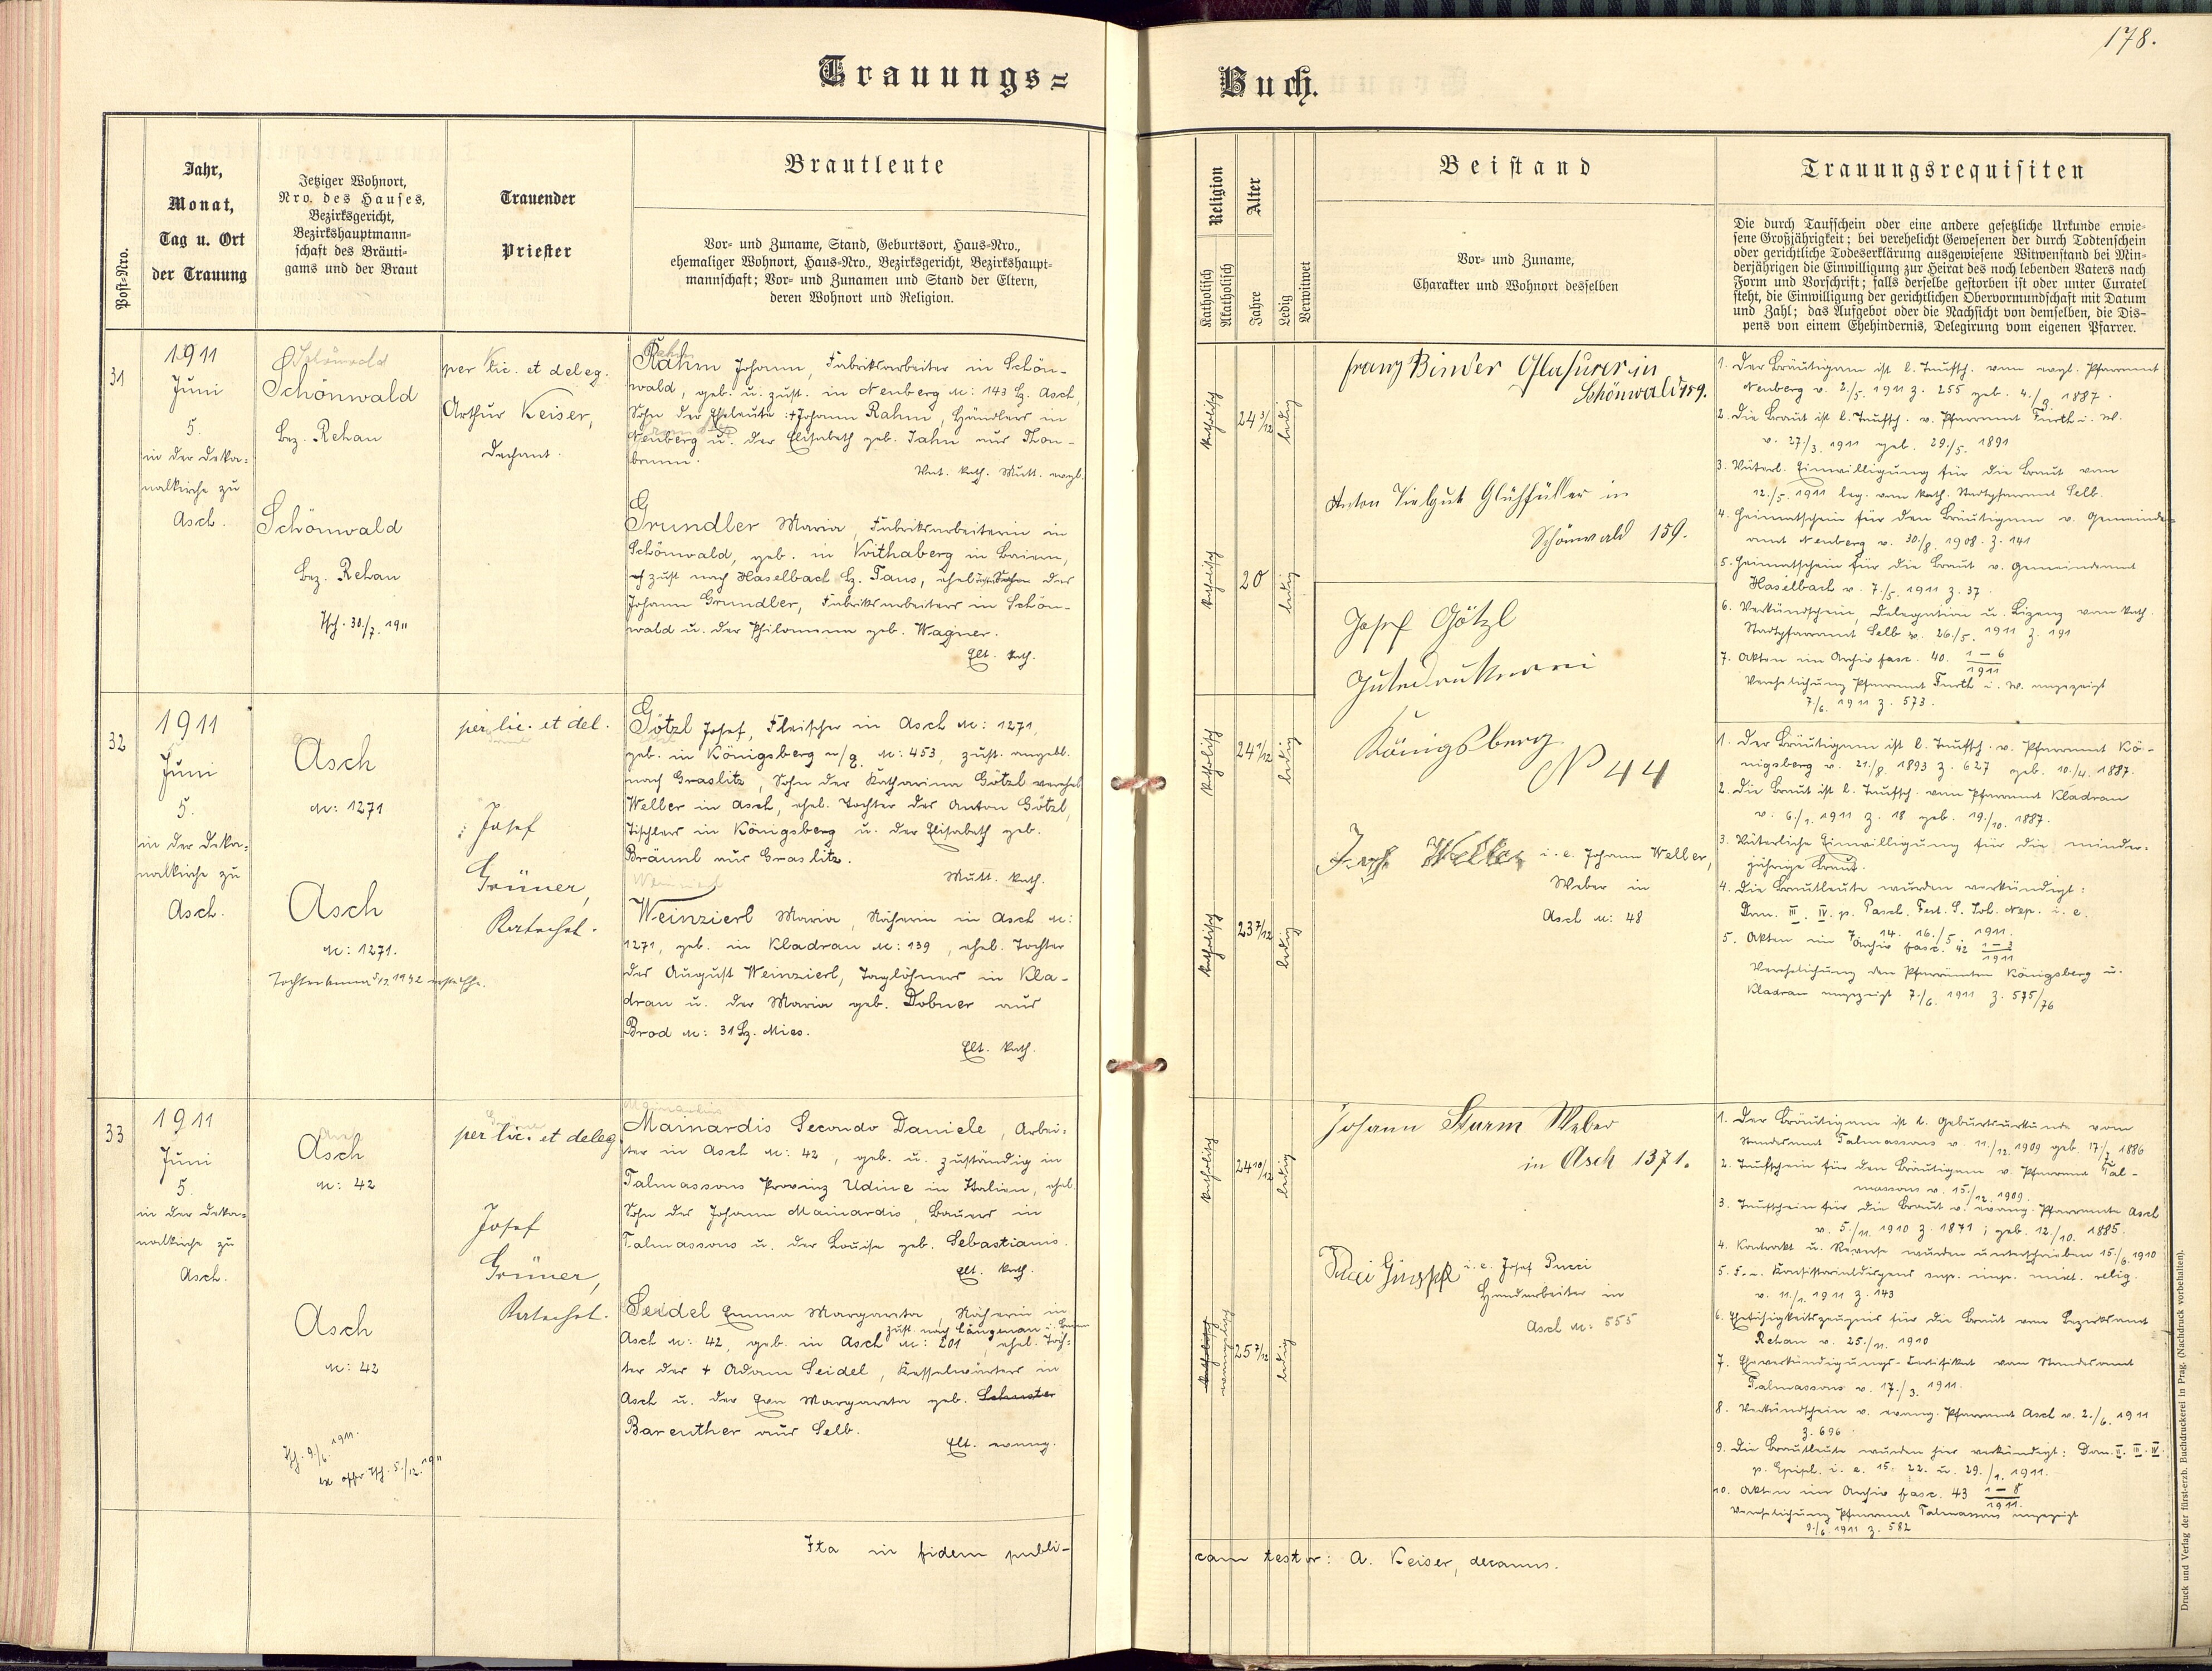 178.
Trauungs=
Buch.
Post-Nro.
Jahr,
Monat,
Tag u. Ort
der Trauung
Jetziger Wohnort,
Nro. des Hauses,
Bezirksgericht,
Bezirkshauptmann-
schaft des Bräuti-
gams und der Braut
Trauender
Priester
Brautleute
Vor- und Zuname, Stand, Geburtsort, Haus-Nro.,
ehemaliger Wohnort, Haus-Nro., Bezirksgericht, Bezirkshaupt-
mannschaft; Vor- und Zunamen und Stand der Eltern,
deren Wohnort und Religion.
Religion
Katholisch
Akatholisch
Alter
Jahre
Ledig
Verwitwet
Beistand
Vor- und Zuname,
Charakter und Wohnort desselben
Trauungsrequisiten
Die durch Taufschein oder eine andere gesetzliche Urkunde erwie-
sene Großjährigkeit; bei verehelicht Gewesenen der durch Todtenschein
oder gerichtliche Todeserklärung ausgewiesene Witwenstand bei Min-
derjährigen die Einwilligung zur Heirat des noch lebenden Vaters nach
Form und Vorschrift; falls derselbe gestorben ist oder unter Curatel
steht, die Einwilligung der gerichtlichen Obervormundschaft mit Datum
und Zahl; das Aufgebot oder die Nachsicht von demselben, die Dis-
pens von einem Ehehindernis, Delegirung vom eigenen Pfarrer.
31
1911
Juni
5.
in der Deka-
nalkirche zu
Asch.
Schönwald
Bez. Rehau
Schönwald
Bez. Rehau
30./7. 1911
per lic. et deleg.
Arthur Keiser,
Dechant.
Rahm Johann, Fabriksarbeiter in Schön-
wald, geb. u. zust. in Neuberg N: 143 Bz. Asch,
Sohn der Eheleute: † Johann Rahm, Händlers in
Neuberg u. der Elisabeth geb. Jahn aus Thon-
brunn.
Vat. kath. Mutt. evgl.
Grundler Maria, Fabriksarbeiterin in
Schönwald, geb. in Voithaberg in Baiern,
zust nach Haselbach Bz. Taus, ehel. des
Johann Grundler, Fabriksarbeiters in Schön-
wald u. der Philomena geb. Wagner.
Elt. kath.
katholisch
24 3/12
ledig
katholisch
20
ledig
Franz Binder Glasurer in
Schönwald 159.
Anton Vielgut Glühfüller in
Schönwald 159.
1. Der Bräutigam ist l. Taufsch. vom evgl. Pfarramt
Neuberg v. 2./5. 1911 Z. 255 geb. 4./3 1887.
2. Die Braut ist l. Taufsch. v. Pfarramt Furth i. W.
v. 27/3. 1911 geb. 29./5. 1891
3. Väterl. Einwilligung für die Braut vom
12./5. 1911 leg. vom kath. Stadtpfarramt Selb
4. Heimatschein für den Bräutigam v. Gemeinde-
amt Neuberg v. 30./8. 1908. Z. 141
5. Heimatschein für die Braut v. Gemeindeamt
Haselbach v. 7./5. 1911 Z. 37.
6. Verkündschein, Delegation u. Lizenz vom kath.
Stadtpfarramt Selb v. 26./5. 1911 Z. 191
7. Akten im Archiv fasc. 40. 1–6/1911
Verehelichung Pfarramt Furth i. W. angezeigt
7/6. 1911 Z. 573.
32
1911
Juni
5.
in der Deka-
nalkirche zu
Asch.
Asch
N: 1271
Asch
N: 1271.
per lic. et del.
Josef
Grüner,
Katechet.
Götzl Josef, Fleischer in Asch N: 1271,
geb. in Königsberg a/E. N: 453, zust. angebl.
nach Graslitz, Sohn der Katharina Götzl verehel.
Weller in Asch, ehel. Tochter des Anton Götzl,
Tischlers in Königsberg u. der Elisabeth geb.
Bräunl aus Graslitz.
Mutt. kath.
Weinzierl Maria, Näherin in Asch N:
1271, geb. in Kladrau N: 139, ehel. Tochter
des August Weinzierl, Taglöhners in Kla-
drau u. der Maria geb. Dobner aus
Brod N: 31 Bz. Mies.
Elt. kath.
katholisch
24 1/12
ledig
katholisch
23 7/12
ledig
Josef Götzl
Königsberg
No 44
Weller i. e. Johann Weller,
Weber in
Asch N: 48
1. Der Bräutigam ist l. Taufsch. v. Pfarramt Kö-
nigsberg v. 21./8. 1893 Z. 627 geb. 10./4. 1887.
2. Die Braut ist l. Taufsch. vom Pfarramt Kladrau
v. 6./1. 1911 Z. 18 geb. 19./10. 1887.
3. Väterliche Einwilligung für die minder-
jährige Braut.
4. Die Brautleute wurden verkündigt:
Dom. III. IV. p. Pasch. Fest. S. Joh. Nep. i. e.
7. 14. 16./5. 1911.
5. Akten im Archiv fasc. 42 1–3/1911
Verehelichung den Pfarrämtern Königsberg u.
Kladrau angezeigt 7./6. 1911 Z. 575/76
33
1911
Juni
5.
in der Deka-
nalkirche zu
Asch.
Asch
N: 42
Asch
N: 42
9./6. 1911.
ex offo 5./12. 1911
per lic. et deleg.
Josef
Grüner,
Katechet.
Mainardis Secondo Daniele, Arbei-
ter in Asch N: 42, geb. u. zuständig in
Talmassons Provinz Udine in Italien, ehel.
Sohn des Johann Mainardis, Bauers in
Talmassons u. der Louise geb. Sebastianis.
Elt. kath.
Seidel Emma Margareta, Näherin in
zust. nach Längenau i. Baiern
Asch N: 42, geb. in Asch N: 201, ehel. Toch-
ter des † Adam Seidel, Kesselwärters in
Asch u. der Eva Margareta geb. Schuster
Bareuther aus Selb.
Elt. evang.
katholisch
24 10/12
ledig
katholisch
evangelisch
25 7/12
ledig
Johann Sturm Weber
in Asch 1371.
Pucci Giuseppe i. e. Josef Pucci
Handarbeiter in
Asch N: 555
1. Der Bräutigam ist l. Geburtsurkunde vom
Standesamt Talmassons v. 11./12. 1909 geb. 17/7. 1886
2. Taufschein für den Bräutigam v. Pfarramt Tal-
massons v. 15./12. 1909.
3. Taufschein für die Braut v. evang. Pfarramte Asch
v. 5./11. 1910 Z. 1871; geb. 12./10. 1885.
4. Kontrakt u. Reverse wurden unterschrieben 15./6. 1910
5. Konsistorialdispens sup. imp. mixt. relig.
v. 11./1. 1911 Z. 143
6. Ehefähigkeitszeugnis für die Braut vom Bezirksamt
Rehau v. 25./11. 1910
7. Eheverkündigungs-Certifikat vom Standesamt
Talmassons v. 17./3. 1911.
8. Verkündschein v. evang. Pfarramt Asch v. 2./6. 1911
Z. 696
9. Die Brautleute wurden hier verkündigt: Dom. II. III. IV.
p. Epiph. i. e. 15. 22. u. 29./1. 1911.
10. Akten im Archiv fasc. 43 1–8/1911.
Verehelichung Pfarramt Talmassons angezeigt
9./6. 1911 Z. 582
Ita in fidem publi-
cam testor: A. Keiser, decanus.
Druck und Verlag der fürst-erzb. Buchdruckerei in Prag. (Nachdruck vorbehalten).